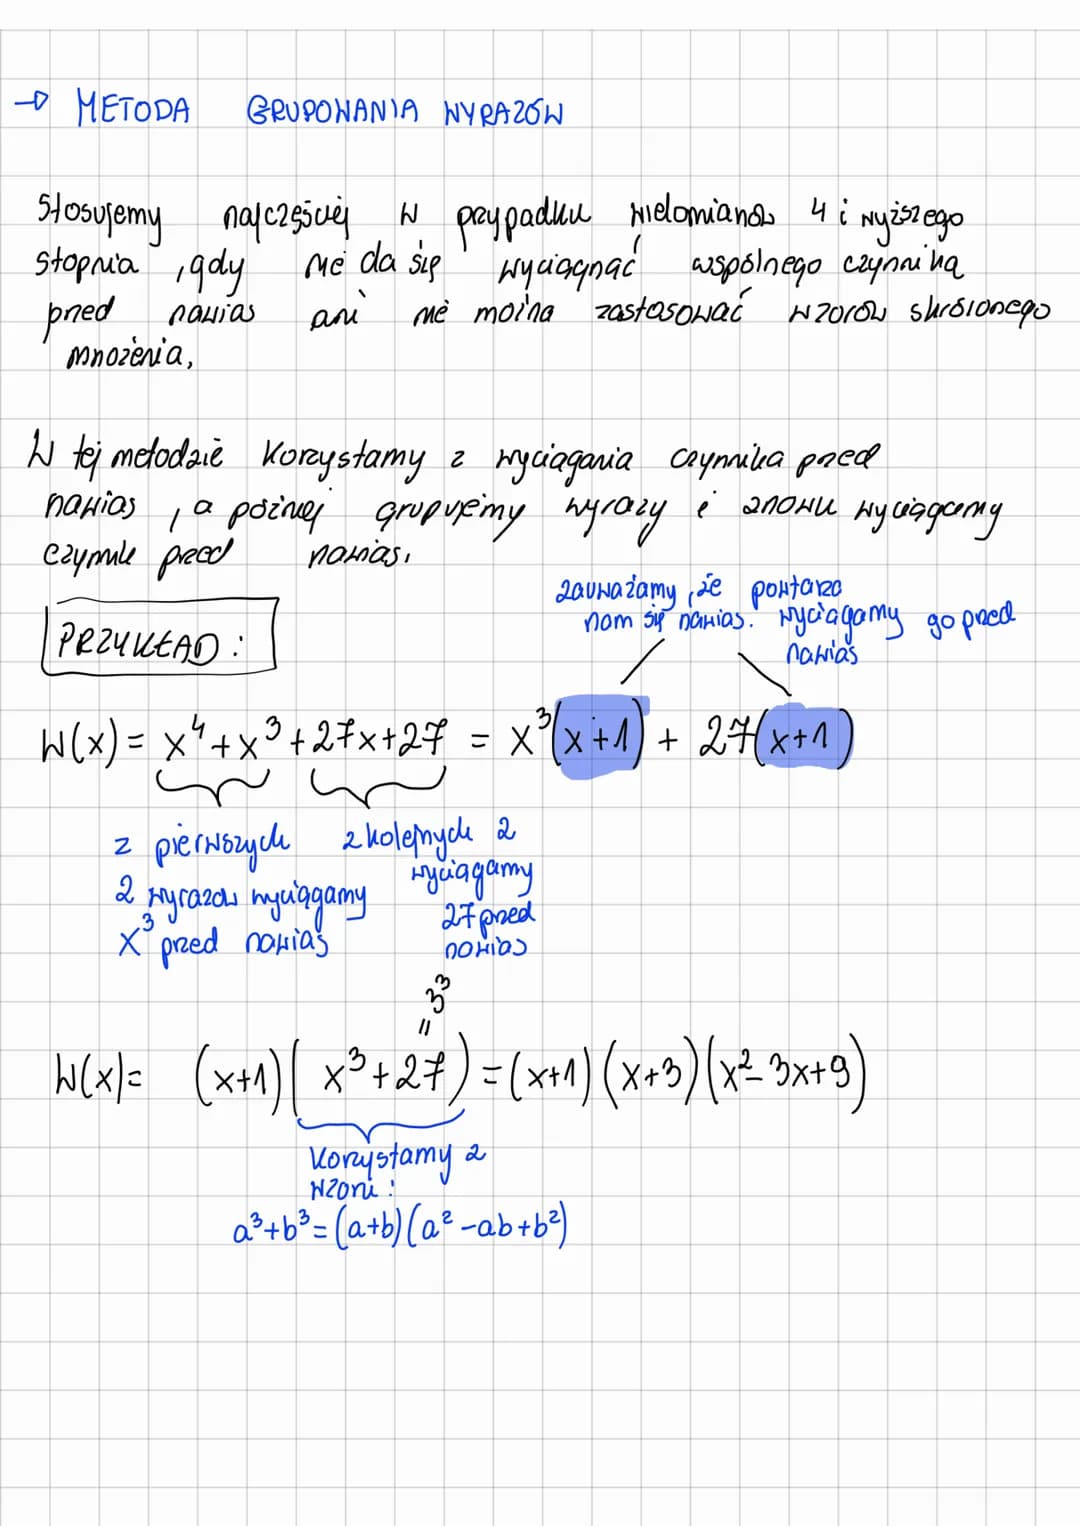 → METODA GRUPOWANIA WYRAZÓW
Stosujemy najczęściej w przypadku wielomianów 4 i wyższego
stopnia, gdy nie da się wyciągnąć wspólnego czynnika
przed nawias ani nie można zastosować wzorów skróconego
mnożenia,
W tej metodzie korzystamy z wyciągania czynnika przed
nawias, a później grupujemy wyrazy i znowu wyciągamy
czynnik przed nawias.
zauważamy, że powtarza
nam się nawias. wyciągamy go przed
nawias
PRZYKŁAD:
W(x) = x⁴+x³+27x+27 = x³(x+1) + 27(x+1)
z pierwszych
2 wyrazów wyciągamy
x³ przed nawias
z kolejnych 2
wyciągamy
27 przed
nawias
= 3³
W(x) = (x+1)(x³+27) = (x+1)(x+3)(x²-3x+9)
korzystamy z
wzoru:
a³+b³ = (a+b)(a²-ab+b²)